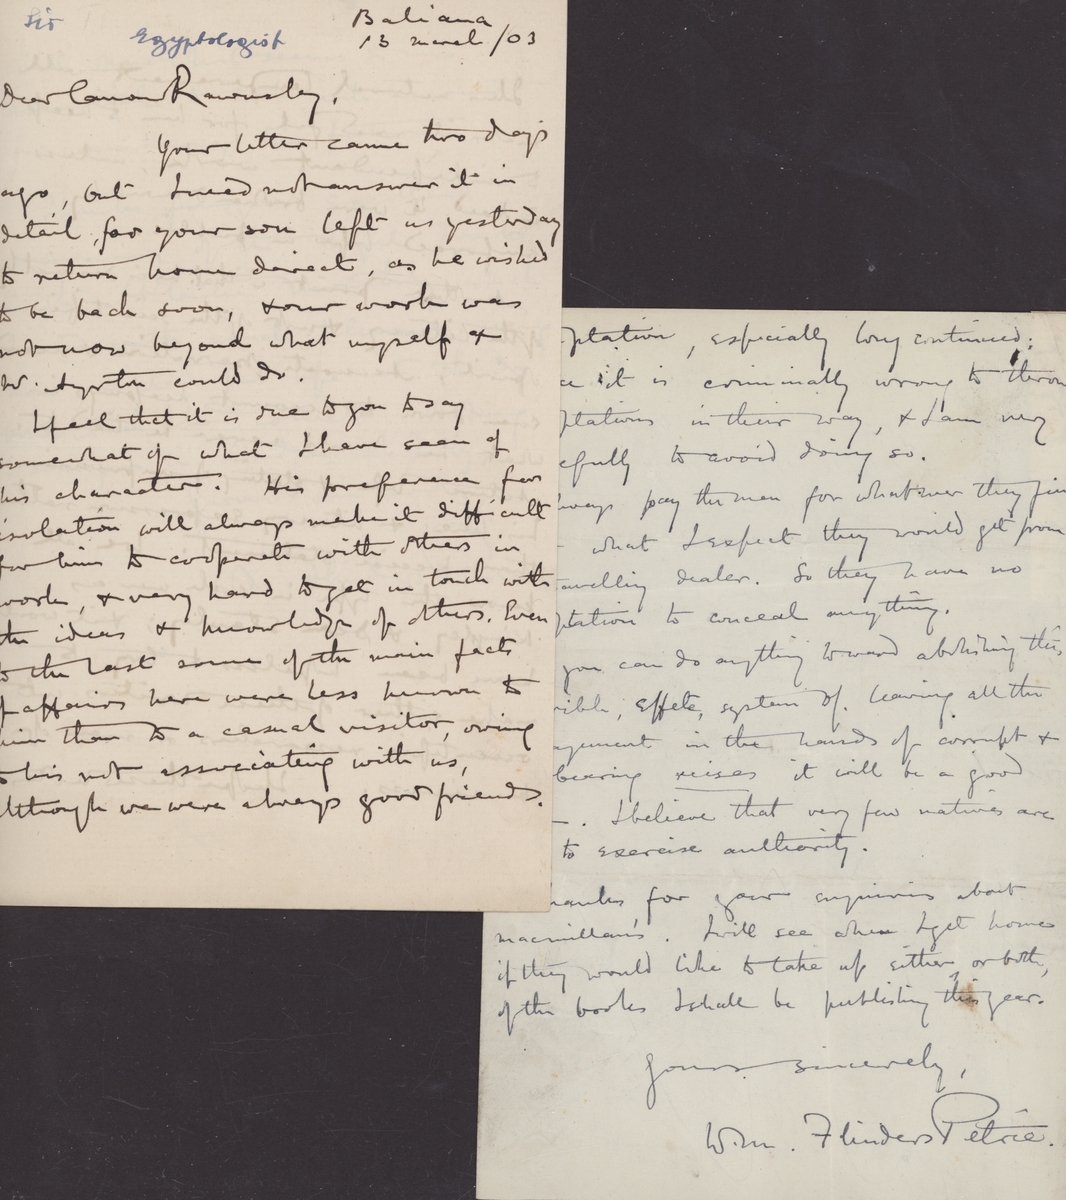 Sir
Egyptologist
Baliana
13 March /03
Dear Canon Rawnsley,
Your letter came two days
ago, but I need not answer it in
detail, for your son left us yesterday
to return home direct, as he wished
to be back soon, & our work was
not now beyond what myself &
Mr. Ayrton could do.
I feel that it is due to you to say
somewhat of what I have seen of
his character. His preference for
isolation will always make it difficult
for him to cooperate with others in
work, & very hard to get in touch with
the ideas & knowledge of others. Even
to the last some of the main facts
of affairs here were less known to
him than to a casual visitor, owing
to his not associating with us,
although we were always good friends.
ptation, especially long continued;
ce it is criminally wrong to throw
ptations in their way, & I am very
efully to avoid doing so.
lways pay the men for whatever they fin
what I expect they would get from
avelling dealer. So they have no
ptation to conceal anything.
you can do anything toward abolishing this
rible, effete, system of leaving all the
agement in the hands of corrupt &
bearing reises it will be a good
. I believe that very few natives are
to exercise authority.
hanks for your enquiries about
Macmillan's. I will see when I get home
if they would like to take up either, or both,
of the books I shall be publishing this year.
Yours sincerely,
W. M. Flinders Petrie.